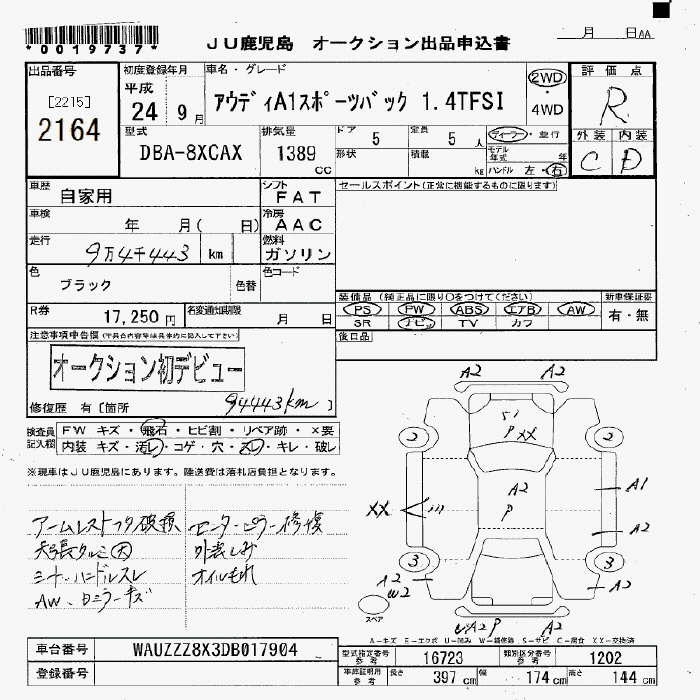 *0019737*
JU鹿児島 オークション出品申込書
月 日AA
出品番号
[2215]
2164
初度登録年月
平成
24 9月
車名・グレード
アウディA1スポーツバック 1.4TFSI
2WD
・
4WD
評価点
R
外装 内装
C D
型式
DBA-8XCAX
排気量
1389
cc
ドア 5
定員 5人
形状
積載 kg
ディーラー・並行
モデル年式 年
ハンドル 左・右
車歴
自家用
シフト
FAT
セールスポイント(正常に機能するものに限ります)
車検
年 月( 日)
冷房
AAC
走行
9万4千443 km
燃料
ガソリン
色
ブラック
色替
色コード
R券
17,250円
名変通知期限
月 日
装備品(純正品に限り○をつけて下さい)
PS PW ABS エアB AW
SR ナビ TV カワ
新車保証書
有・無
後日品
注意事項申告欄(不具合内容等は具体的に記入して下さい)
オークション初デビュー
94443km
修復歴 有[箇所 ]
検査員記入欄
FW キズ・飛石・ヒビ割・リペア跡・X要
内装 キズ・汚レ・コゲ・穴・スレ・キレ・破レ
※現車はJU鹿児島にあります。陸送費は落札店負担となります。
アームレストフタ破損 センターピラー修復
天張タルミ大 外装しみ
シート・ハンドルスレ オイルもれ
A2 A2
S1
P XX
2 2
A2
P
XX
A1
A2
3 3
A2
W2
A2
スペア
A2P A2
A-キズ E-エクボ U-凹み W-補修跡 S-サビ C-腐食 XX-交換済
車台番号
WAUZZZ8X3DB017904
登録番号
型式指定番号
参考
16723
類別区分番号
参考
1202
車庫証明用
参考
長さ 397cm
幅 174cm
高さ 144cm